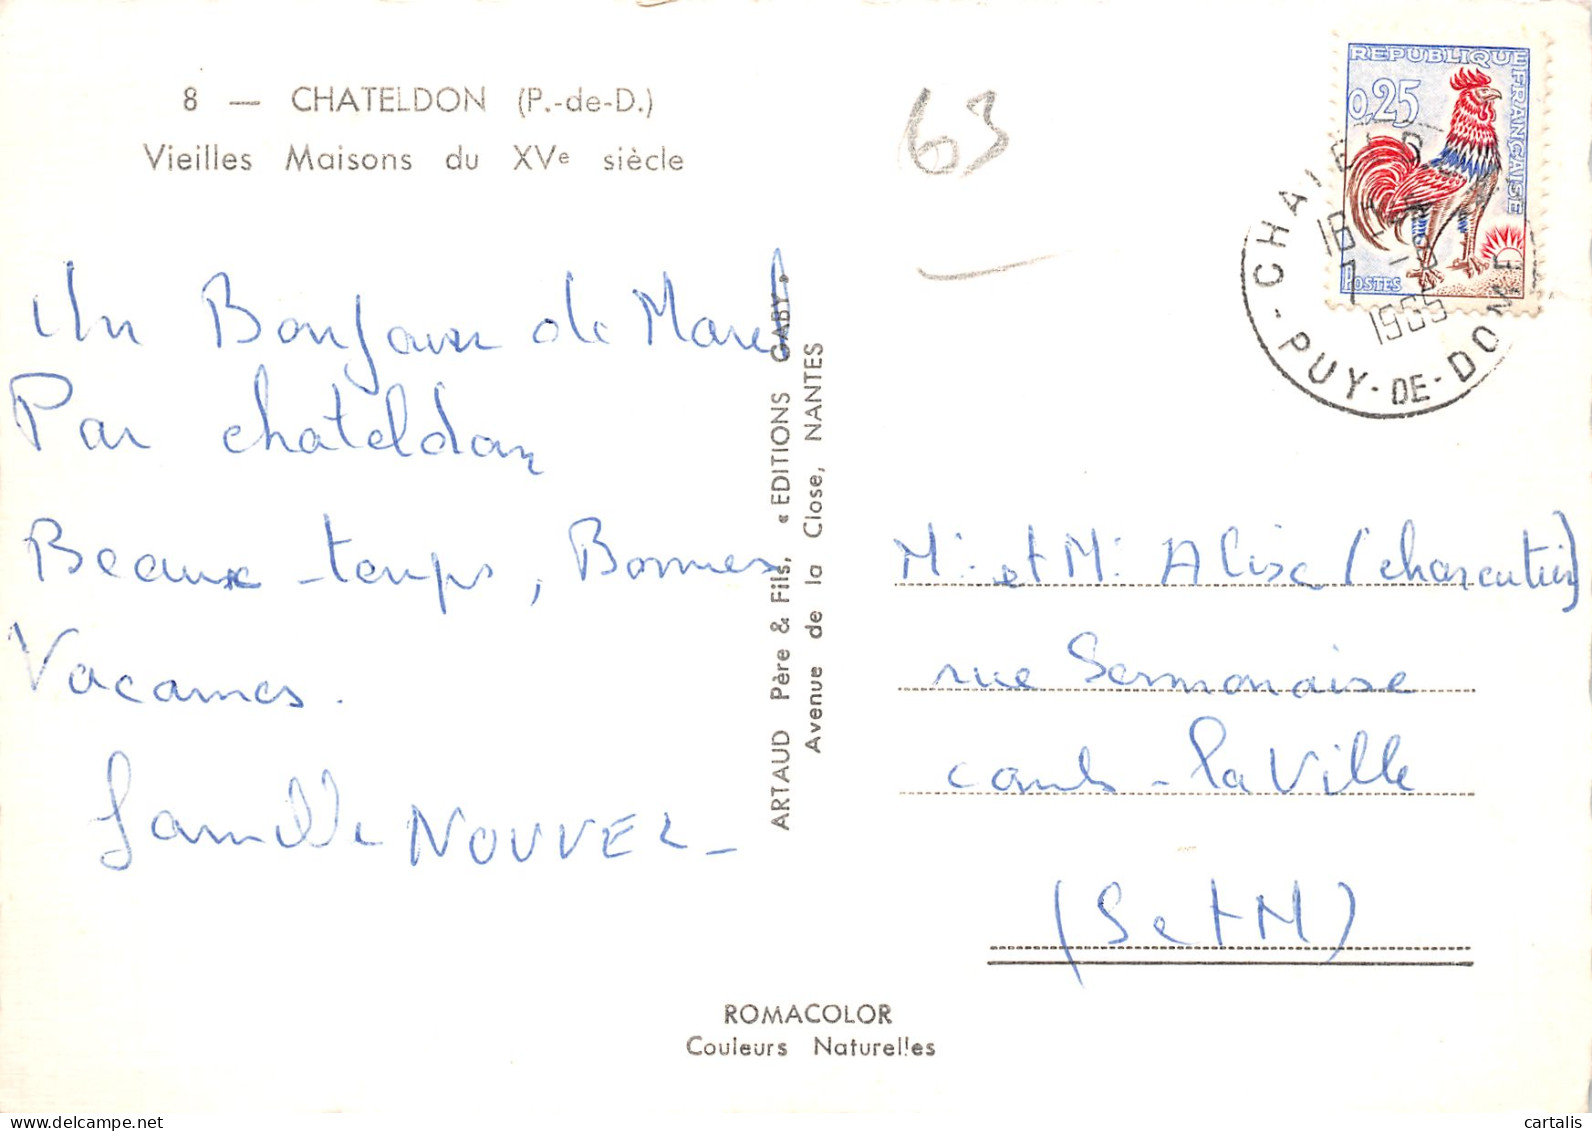 8 — CHATELDON (P.-de-D.)
Vieilles Maisons du XVe siècle
63
REPUBLIQUE FRANÇAISE
0,25
POSTES
CHATELDON
18H
7 -7
1965
- PUY-DE-DOME
Un Bonjour de
Par chateldon
Beaux temps, Bonnes
Vacances.
famille NOUVEL -
ARTAUD Père & Fils, « EDITIONS GABY »
Avenue de la Close, NANTES
Mr et Mr Alix (charcutier)
rue Sermonaise
Combs - la Ville
(S et M)
ROMACOLOR
Couleurs Naturelles
cartalis